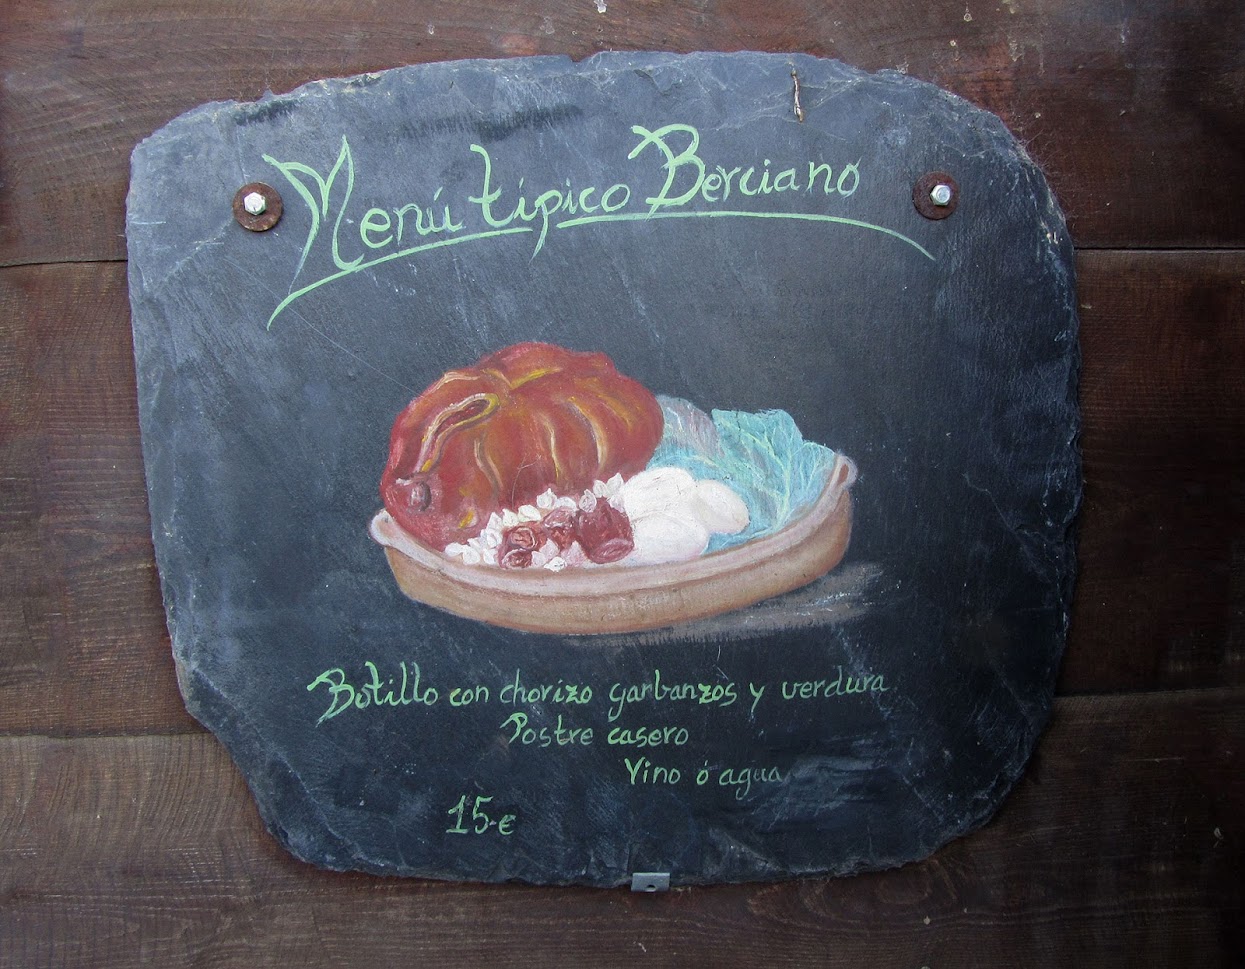 Menú típico Berciano
Botillo con chorizo garbanzos y verdura
Postre casero
Vino ó agua
15-€